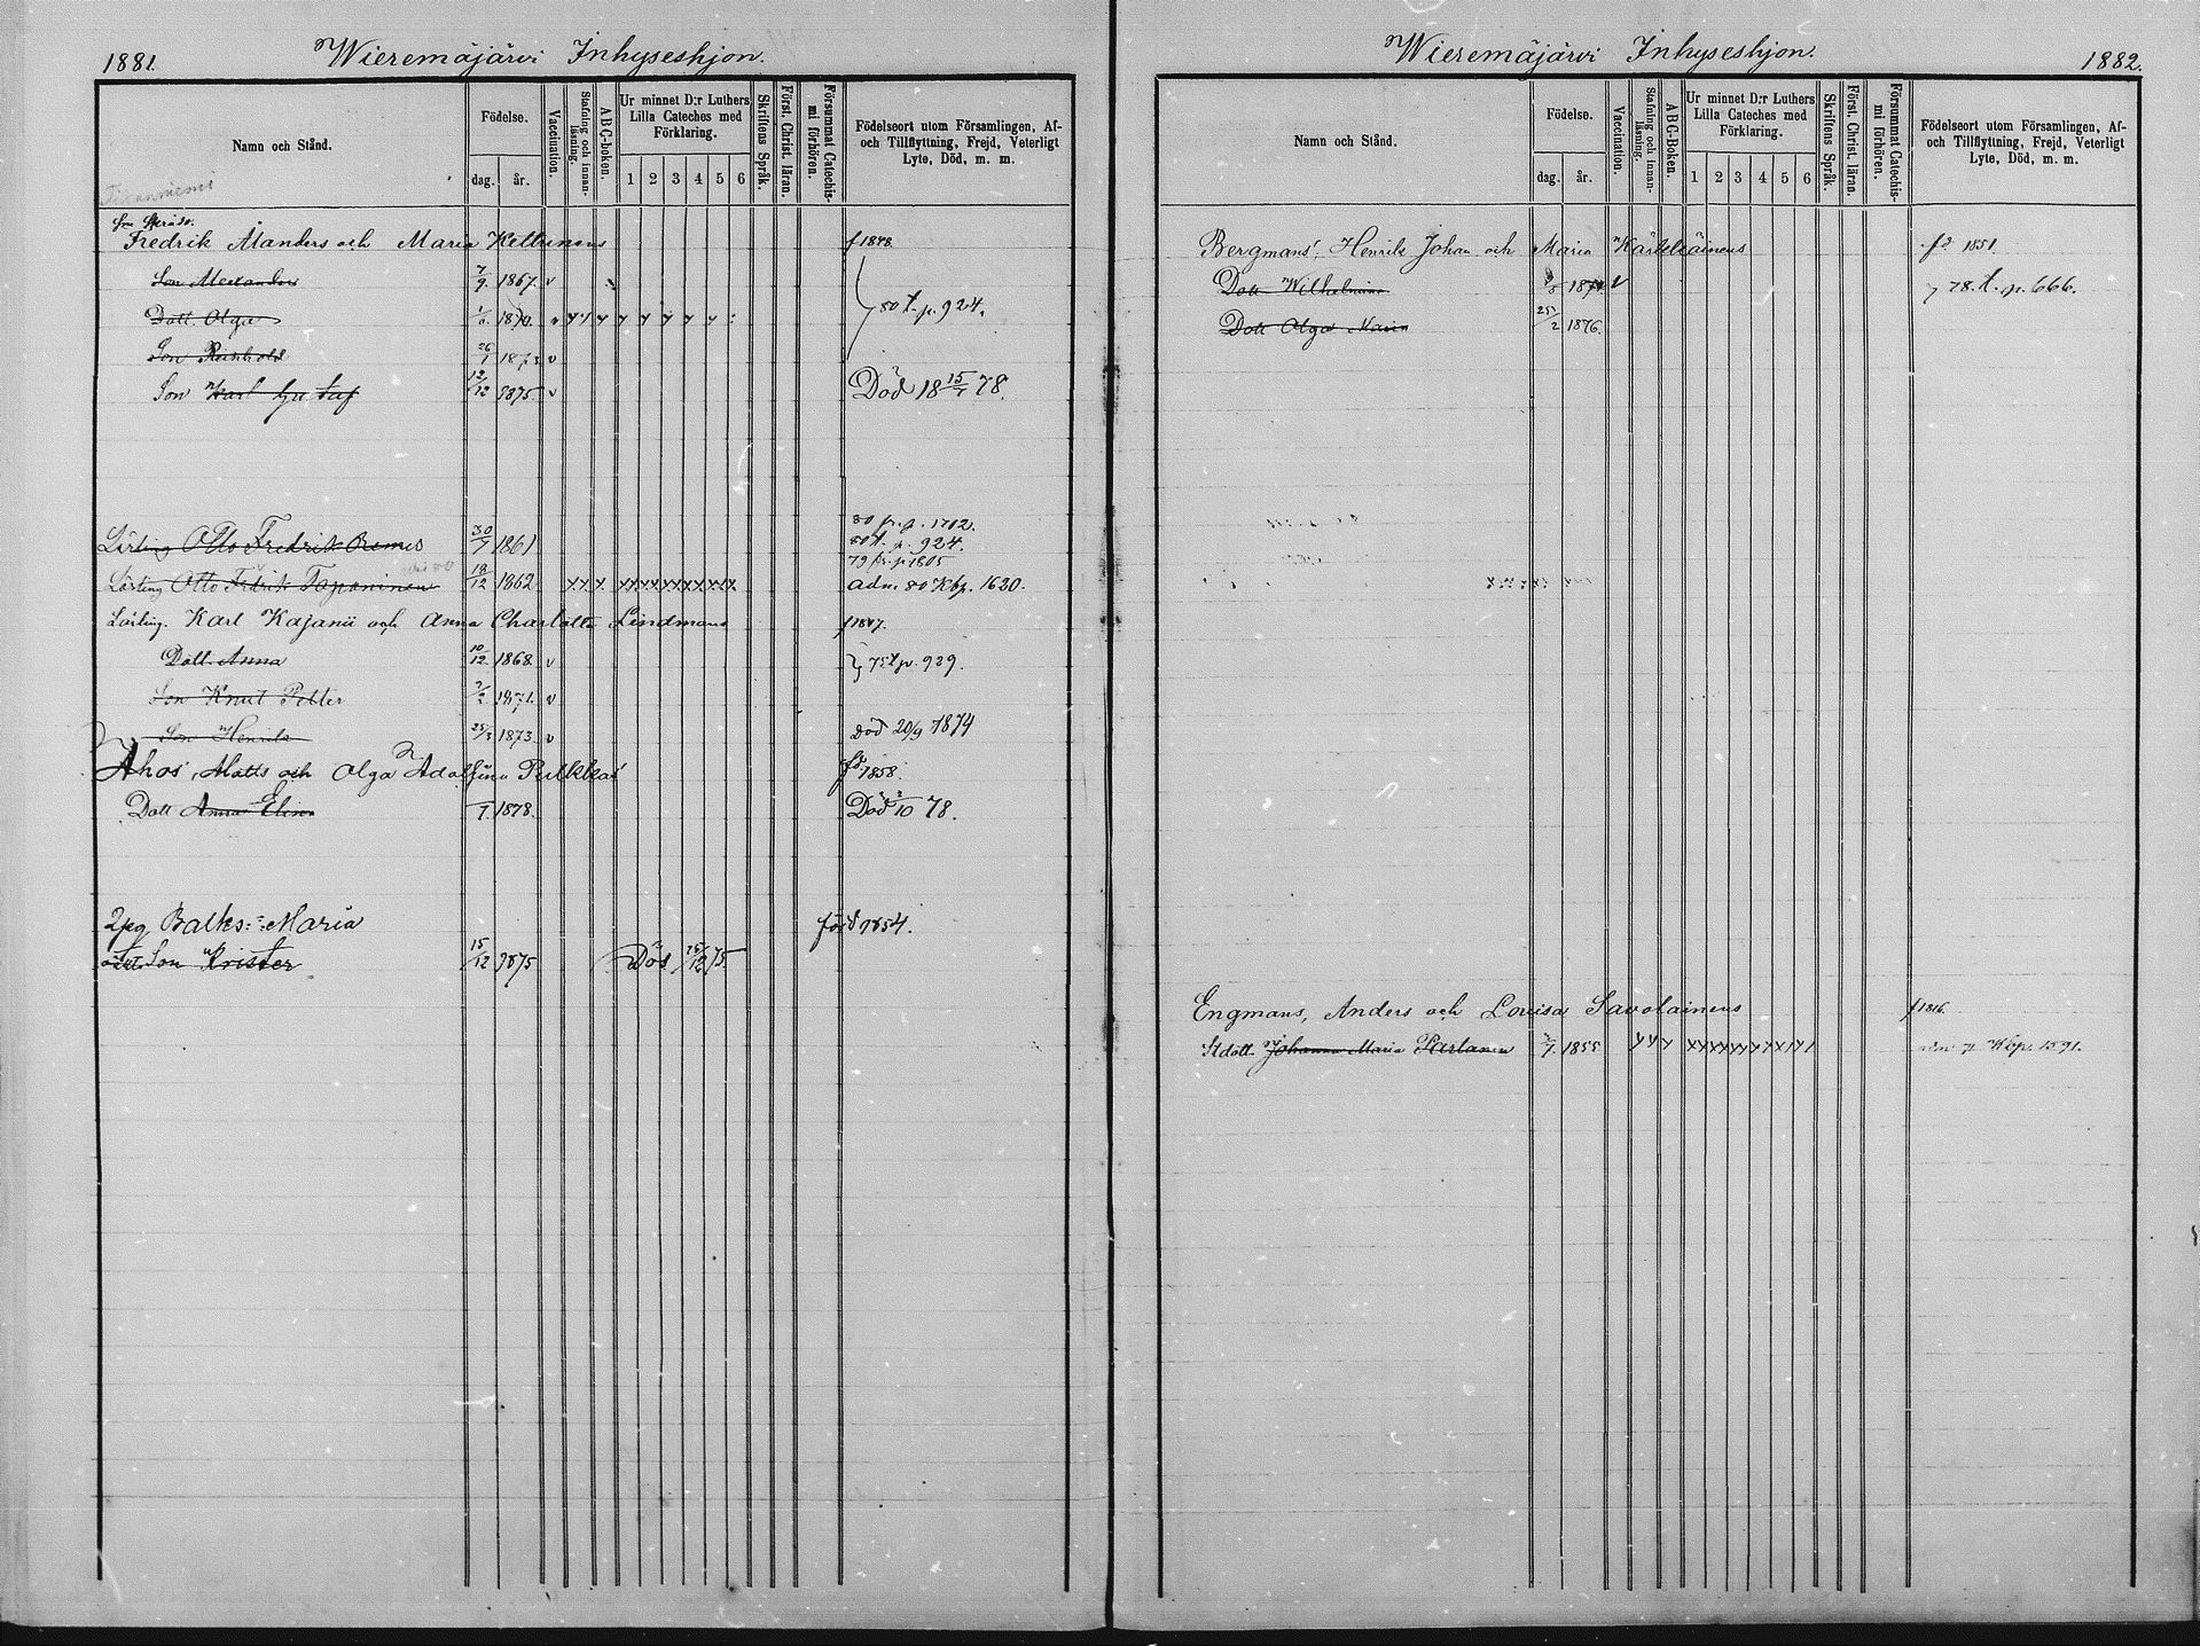 1881.
Wieremäjärvi Inhyseshjon.
Namn och Stånd.
Födelse.
dag.
år.
Vaccination.
Stafning och innanläsning.
ABC-boken.
Ur minnet D:r Luthers Lilla Cateches med Förklaring.
1 2 3 4 5 6
Skriftens Språk.
Först. Christ. läran.
Försummat Catechismi förhören.
Födelseort utom Församlingen, Af- och Tillflyttning, Frejd, Veterligt Lyte, Död, m. m.
Fredrik Ålanders och Maria Kettunens f 1848.
Son Alexander 7/9. 1867. v
Dott. Olga 1870. 80 t. p. 924.
Son Reinhold 26/1 1873 v
Son Karl Gustaf 12/12 1875. v Död 18 15/7 78.
80 fr. p. 1712.
Lärling Otto Fredrik Remes 30/7 1861 80 t. p. 924.
79 fr. p 1805
Lärling Otto Fredrik Tapaninen 18/12 1862 x x x xxxxxxxxxxx adm. 80 Kbp. 1620.
Lärling. Karl Kajanii och Anna Charlotta Lindmans f 1847.
Dott. Anna 10/12. 1868. v 75 t p. 929.
Son Knut Petter 1871. v
Son Henrik 25/3 1873. v död 20/9 1874
Ahos, Matts och Olga Adolfina Pulkkas fd 1858.
Dott Anna Elisa 1878. Död 10 78.
2pig. Balks: Maria född 1854.
Son Krister 15/12 1875 Död 12 75.
Wieremäjärvi Inhyseshjon.
1882.
Namn och Stånd.
Födelse.
dag.
år.
Vaccination.
Stafning och innanläsning.
ABC-Boken.
Ur minnet D:r Luthers Lilla Cateches med Förklaring.
1 2 3 4 5 6
Skriftens Språk.
Först. Christ. läran.
Försummat Catechismi förhören.
Födelseort utom Församlingen, Af- och Tillflyttning, Frejd, Veterligt Lyte, Död, m. m.
Bergmans, Henrik Johan och Maria Kärkkäinens fd 1851.
Dott Wilhelmina v 78. t. p. 666.
Dott Olga Maria 25/2 1876.
Engmans, Anders och Lovisa Savolainens f 1816.
Stdott. Johanna Maria Partanen 1855 Kbp. 1591.